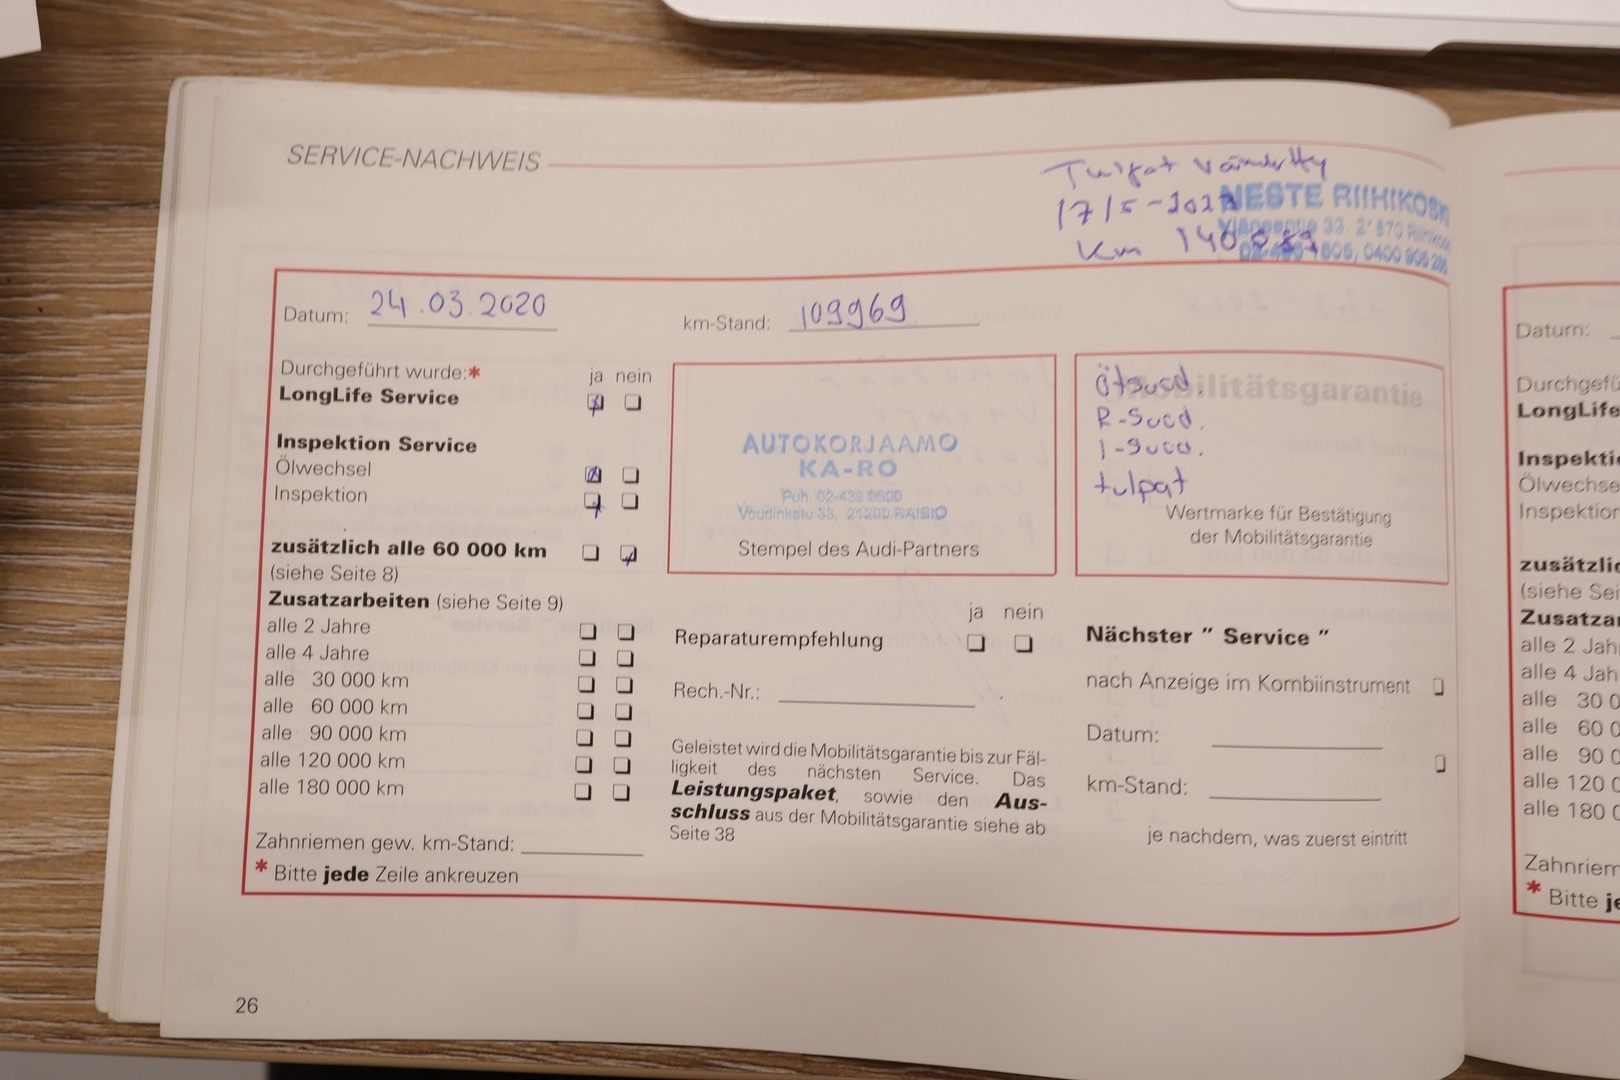 SERVICE-NACHWEIS
Tulpat
17/5-202
NESTE RIIHIKOSKI
km 140
0400 906
Datum: 24.03.2020
km-Stand: 109969
Durchgeführt wurde:*
ja nein
LongLife Service
Inspektion Service
Ölwechsel
Inspektion
zusätzlich alle 60 000 km
(siehe Seite 8)
Zusatzarbeiten (siehe Seite 9)
alle 2 Jahre
alle 4 Jahre
alle 30 000 km
alle 60 000 km
alle 90 000 km
alle 120 000 km
alle 180 000 km
Zahnriemen gew. km-Stand:
* Bitte jede Zeile ankreuzen
AUTOKORJAAMO
KA-RO
Puh. 02-439 9600
Voudinkatu 33, 21200 RAISIO
Stempel des Audi-Partners
ja nein
Reparaturempfehlung
Rech.-Nr.:
Geleistet wird die Mobilitätsgarantie bis zur Fäl-
ligkeit des nächsten Service. Das
Leistungspaket, sowie den Aus-
schluss aus der Mobilitätsgarantie siehe ab
Seite 38
Mobilitätsgarantie
ötsuod.
R-Suod.
I-Suod.
tulpat
Wertmarke für Bestätigung
der Mobilitätsgarantie
Nächster " Service "
nach Anzeige im Kombiinstrument
Datum:
km-Stand:
je nachdem, was zuerst eintritt
26
Datum:
Durchgefü
LongLife
Inspekti
Ölwechse
Inspektion
zusätzlic
(siehe Sei
Zusatzar
alle 2 Jah
alle 4 Jah
alle 30 0
alle 60 0
alle 90 0
alle 120 0
alle 180 0
Zahnriem
* Bitte je